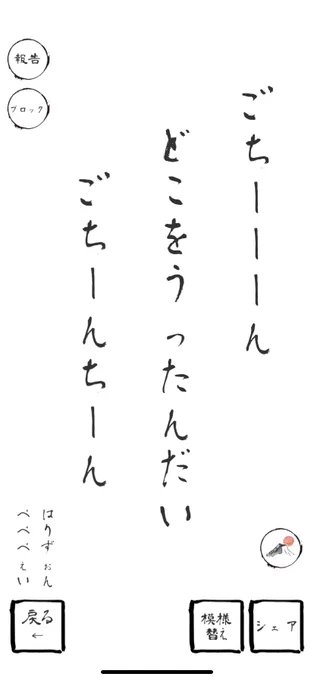 報告
ブロック
ごちーーーん
どこをうったんだい
ごちーんちーん
はりずぉん
ぺぺぺぇい
戻る
←
模様
替え
シェア